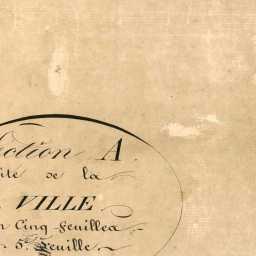 ection A.
ite de la
VILLE
n Cinq feuilles
5e feuille.